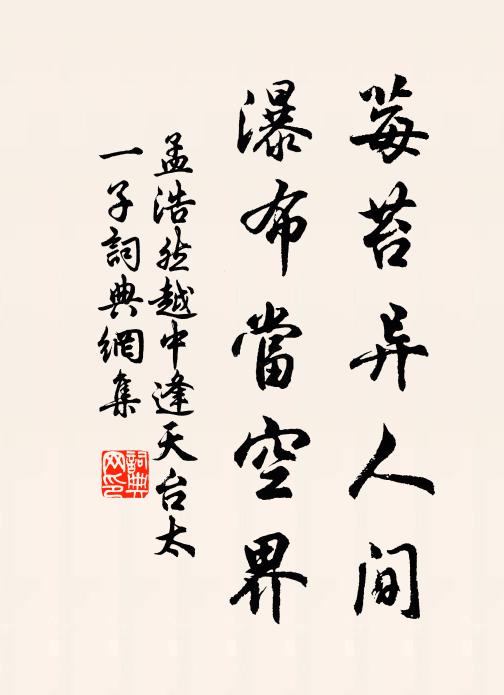 莓苔异人间
瀑布當空界
孟浩然越中逢天台太
一子詞典網集
詞典网印